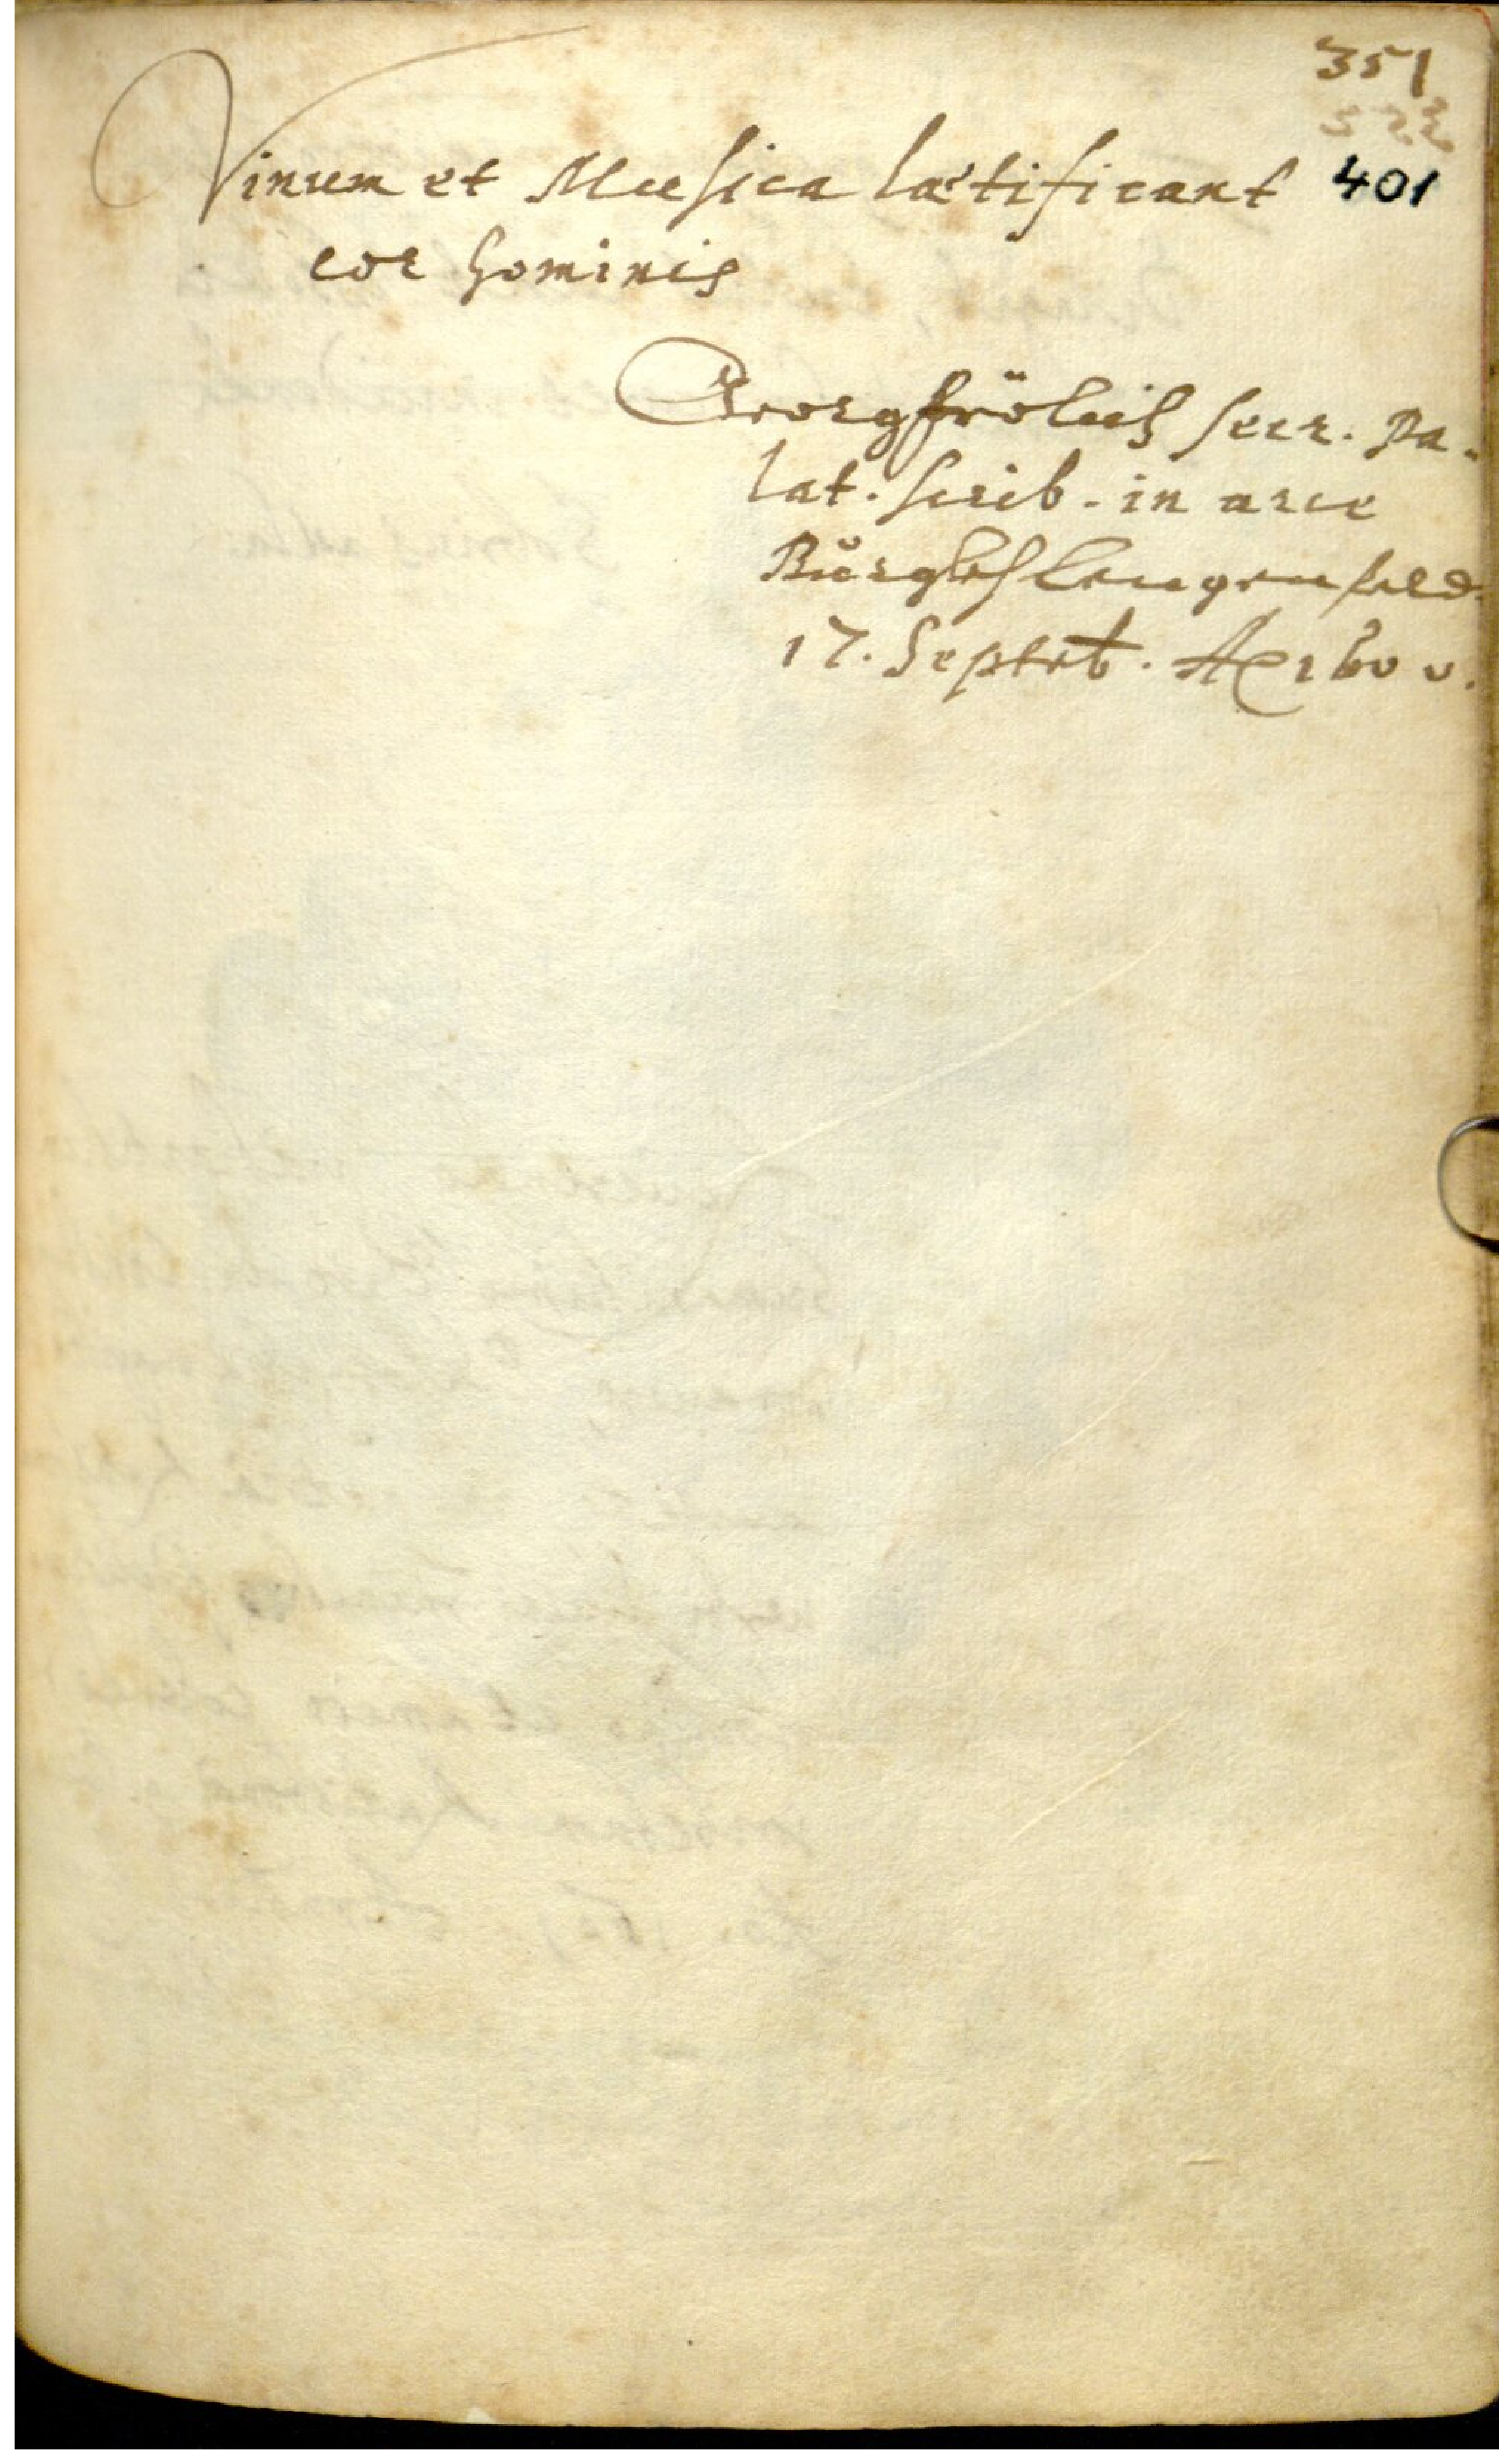 351
401
Vinum et Musica laetificant
cor hominis
Georg Frölich secr. Pa-
lat. scrib. in arce
Burglehlengenfeld.
17. Septrb. Ao 1600.